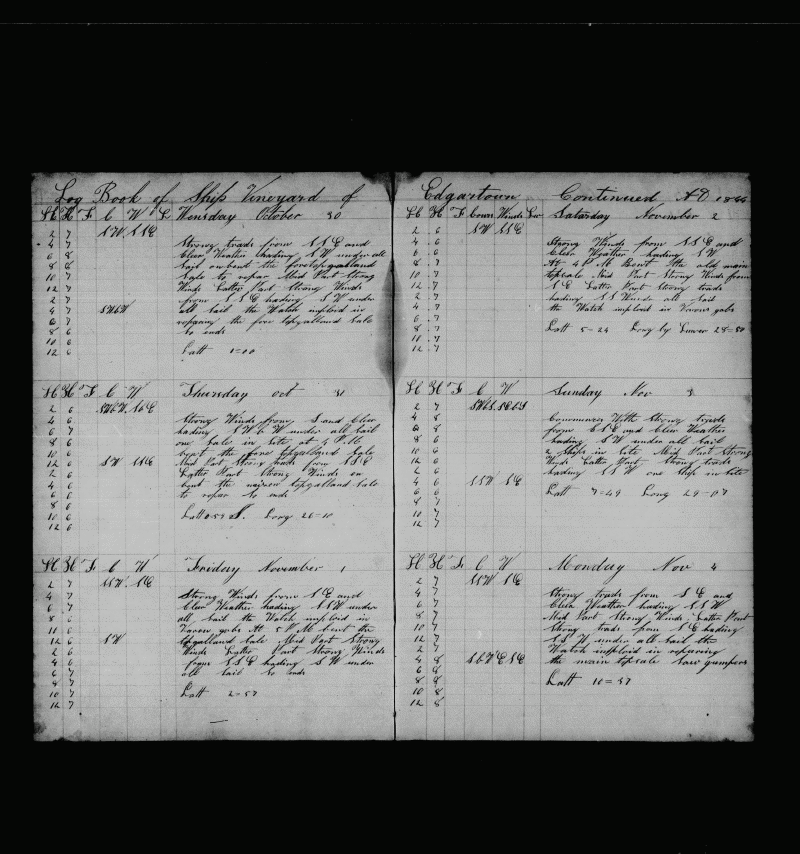 Log Book of Ship Vineyard of
H K F C W L Wensday October 30
2 7 SW SSE
4 7 Strong trads from SSE and
6 8 Clear Weather heading SW under all
8 8 Sail onbent the foretopgalland
10 7 Sale to repar Mid Part Strong
12 7 Winds Latter Part Strong Winds
2 7 from SSE heading SW under
4 7 SWbW all Sail the Watch imploid in
6 7 reparing the fore topgalland Sale
8 6 So ends
10 6
12 6 Latt 1=00
H K F C W Thursday Oct 31
2 6 SWbW SbE
4 6 Strong Winds from S and Clear
6 7 heading SWbW under all Sail
8 6 one Sale in Site at 4 PM
10 6 bent the fore topgalland Sale
12 6 SW SSE Mid Part Strong trads from SSE
2 6 Latter Part Strong Winds on
4 6 bent the mizen topgalland Sale
6 6 to repar So ends
8 6
10 6 Latt 0=59 S. Long 26=10
12 6
H K F C W Friday November 1
2 7 SSW SE
4 7 Strong Winds from SE and
6 7 Clear Weather heading SSW under
8 6 all Sail the Watch imploid in
10 6 Varos gobs At 5 PM bent the
12 6 SW topgalland Sale Mid Part Strong
2 6 Winds Latter Part Strong Winds
4 6 from SSE heading SW under
6 7 all Sail So ends
8 7
10 7 Latt 2=57
12 7
Edgartown Continued AD
H K F Cours Winds Lw Saturday November 2
2 6 SW SSE
4 6 Strong Winds from SSE and
6 6 Clear Weather heading SW
8 7 At 4 PM Bent the old main
10 7 topsale Mid Part Strong Winds from
12 7 SE Latter Part Strong trads
2 7 heading SSW under all Sail
4 7 the Watch imploid in Varous gobs
6 7
8 6 Latt 5=24 Long by Lunar 28=50
10 7
12 7
H K F C W Sunday Nov 3
2 7
4 8 Commences With Strong trads
6 8 from ESE and Clear Weather
8 6 heading SW under all Sail
10 6 2 Ships in Site Mid Part Strong
12 6 Winds Latter Part Strong trads
2 6 heading SSW one Ship in Site
4 6 SSW SE
6 6 Latt 7=49 Long 29=07
8 7
10 7
12 7
H K F C W Monday Nov 4
2 7 SSW SE
4 7 Strong trads from SE and
6 7 Clear Weather heading SSW
8 7 Mid Part Strong Winds Latter Part
10 7 Strong trads from SE heading
12 7 SSW under all Sail the
2 7 Watch imploid in reparing
4 8 SbW ESE the main topsale Saw gumpers
6 8
8 8 Latt 10=37
10 8
12 8